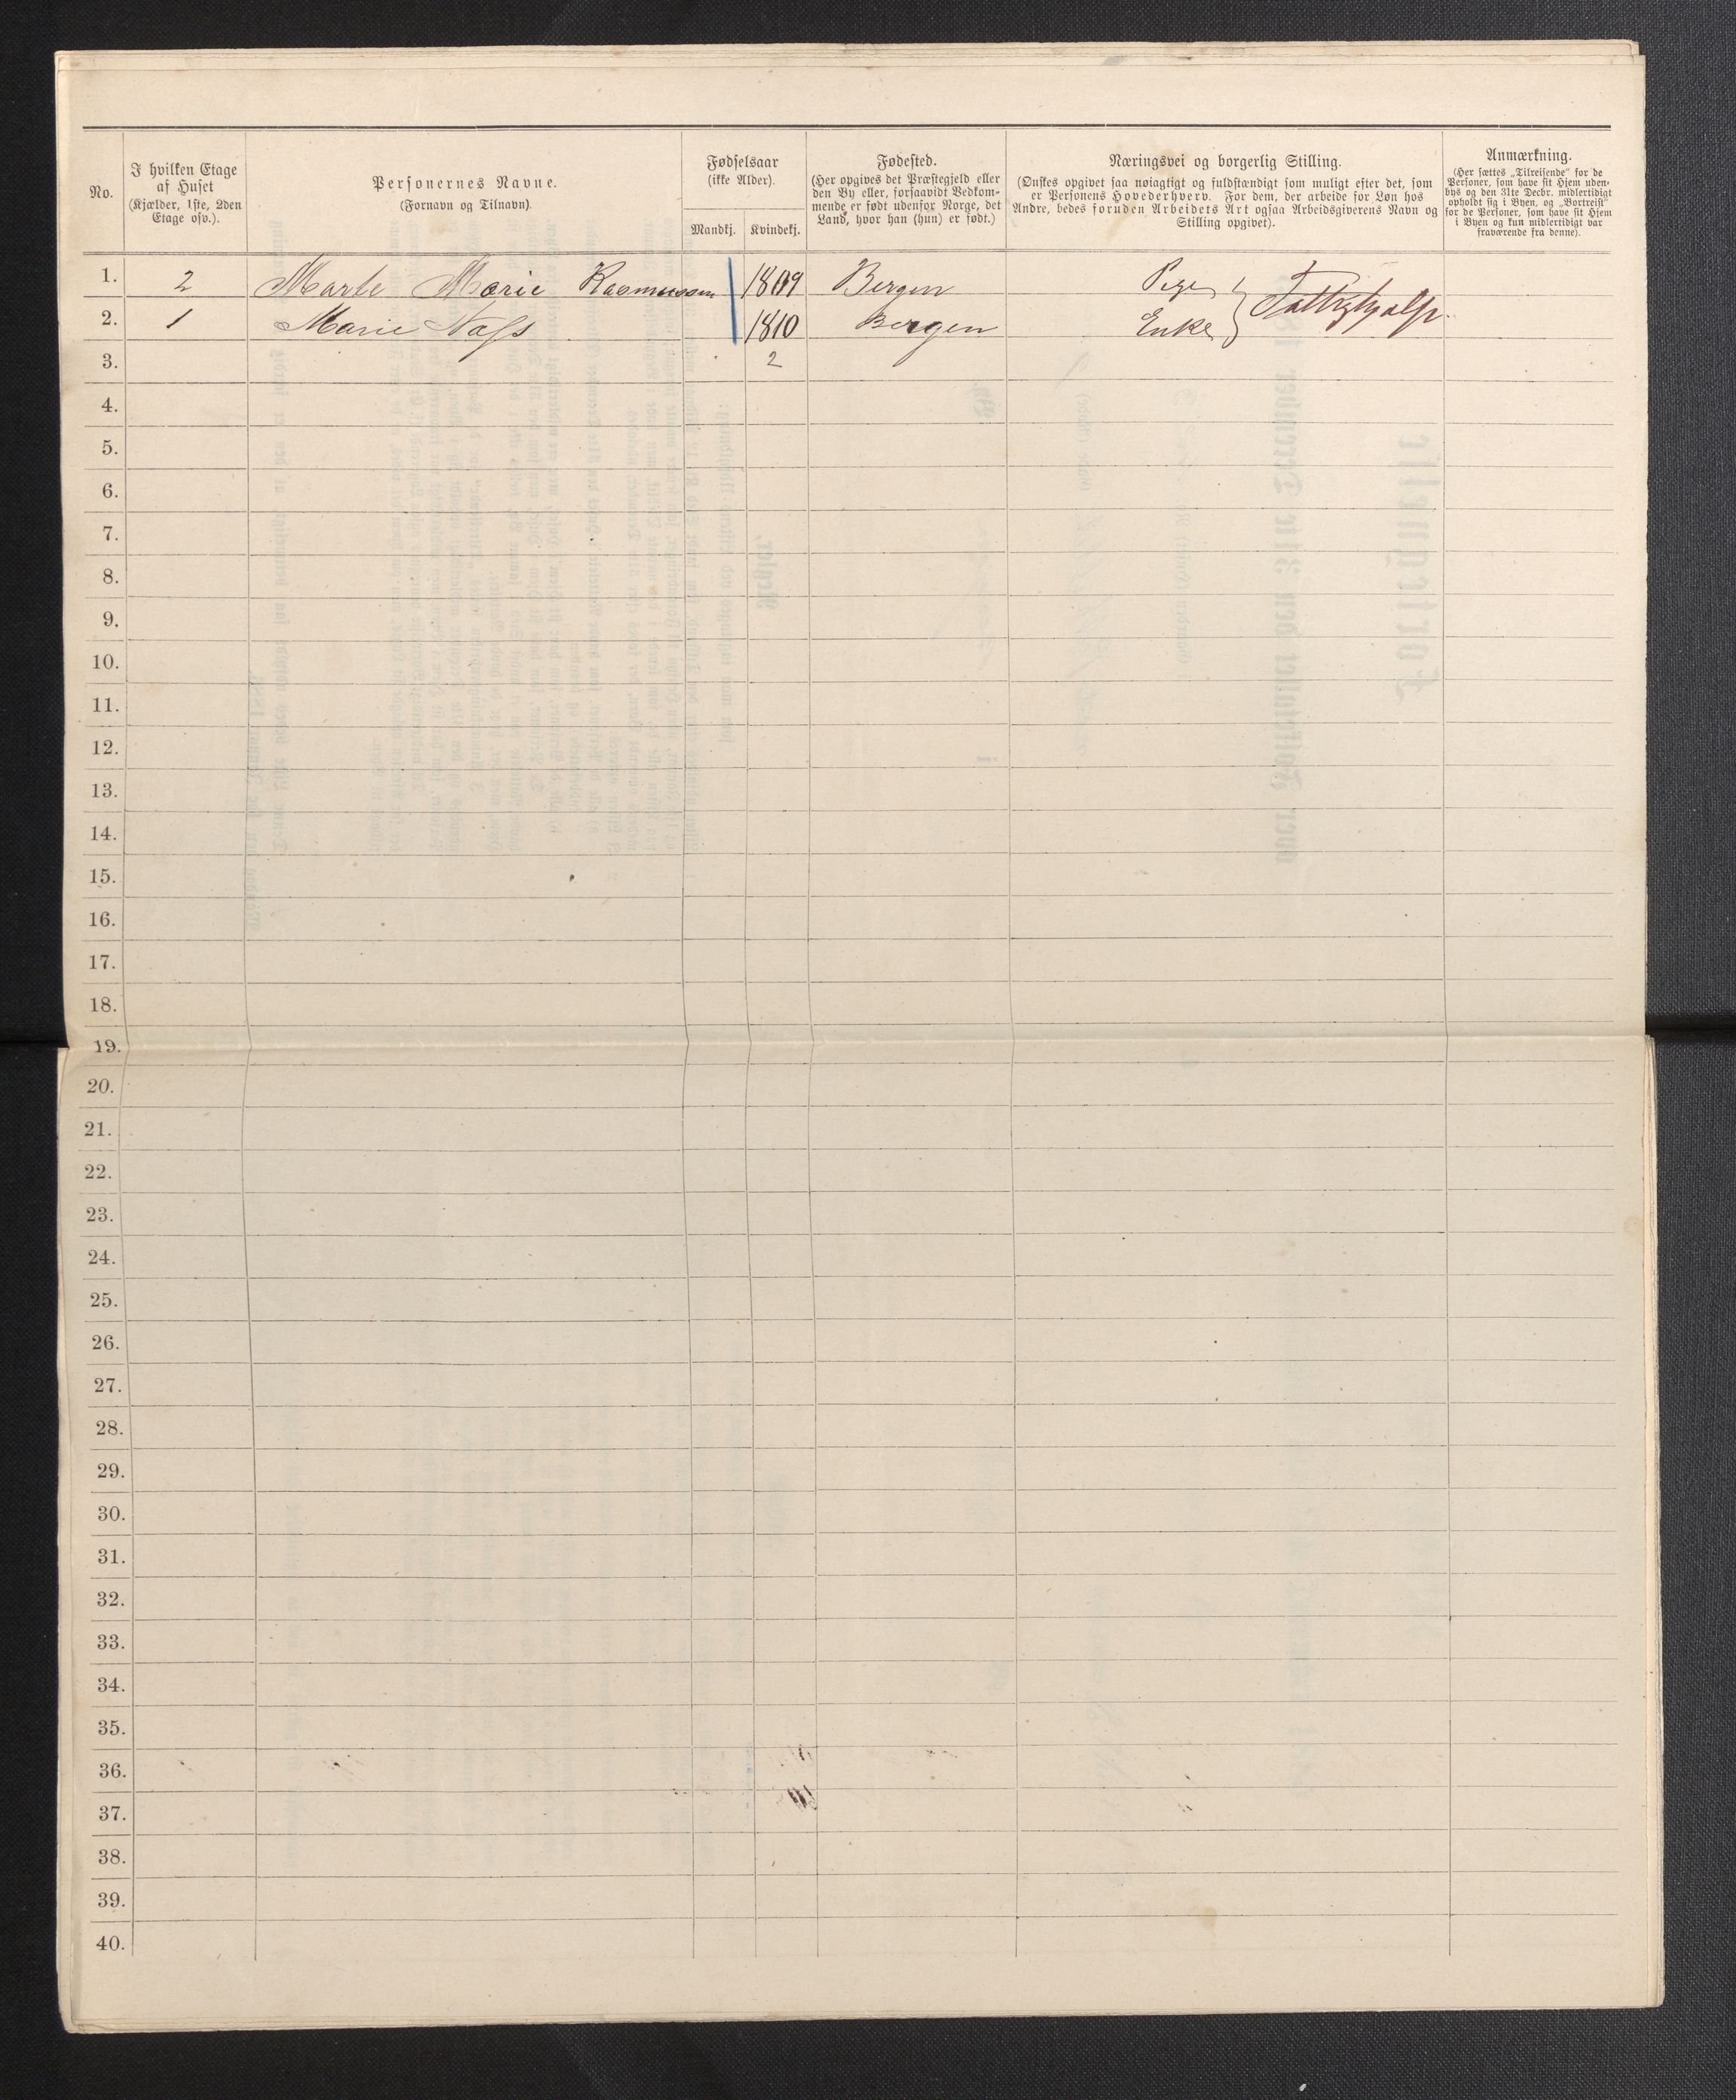 No.
I hvilken Etage
af Huset
(Kjælder, 1ste, 2den
Etage osv.).
Personernes Navne.
(Fornavn og Tilnavn).
Fødselsaar
(ikke Alder).
Mandkj. Kvindekj.
Fødested.
(Her opgives det Præstegjeld eller
den By eller, forsaavidt Vedkom-
mende er født udenfor Norge, det
Land, hvor han (hun) er født.)
Næringsvei og borgerlig Stilling.
(Ønskes opgivet saa nøiagtigt og fuldstændigt som muligt efter det, som
er Personens Hovederhverv. For dem, der arbeide for Løn hos
Andre, bedes foruden Arbeidets Art ogsaa Arbeidsgiverens Navn og
Stilling opgivet).
Anmærkning.
(Her sættes „Tilreisende" for de
Personer, som have sit Hjem uden-
bys og den 31te Decbr. midlertidigt
opholdt sig i Byen, og „Bortreist"
for de Personer, som have sit Hjem
i Byen og kun midlertidigt var
fraværende fra denne).
1. 2 Marte Marie Rasmussen 1809 Bergen Pige
2. 1 Marie Næss 1810 Bergen Enke } Fattighjælp.
3. 2
4.
5.
6.
7.
8.
9.
10.
11.
12.
13.
14.
15.
16.
17.
18.
19.
20.
21.
22.
23.
24.
25.
26.
27.
28.
29.
30.
31.
32.
33.
34.
35.
36.
37.
38.
39.
40.